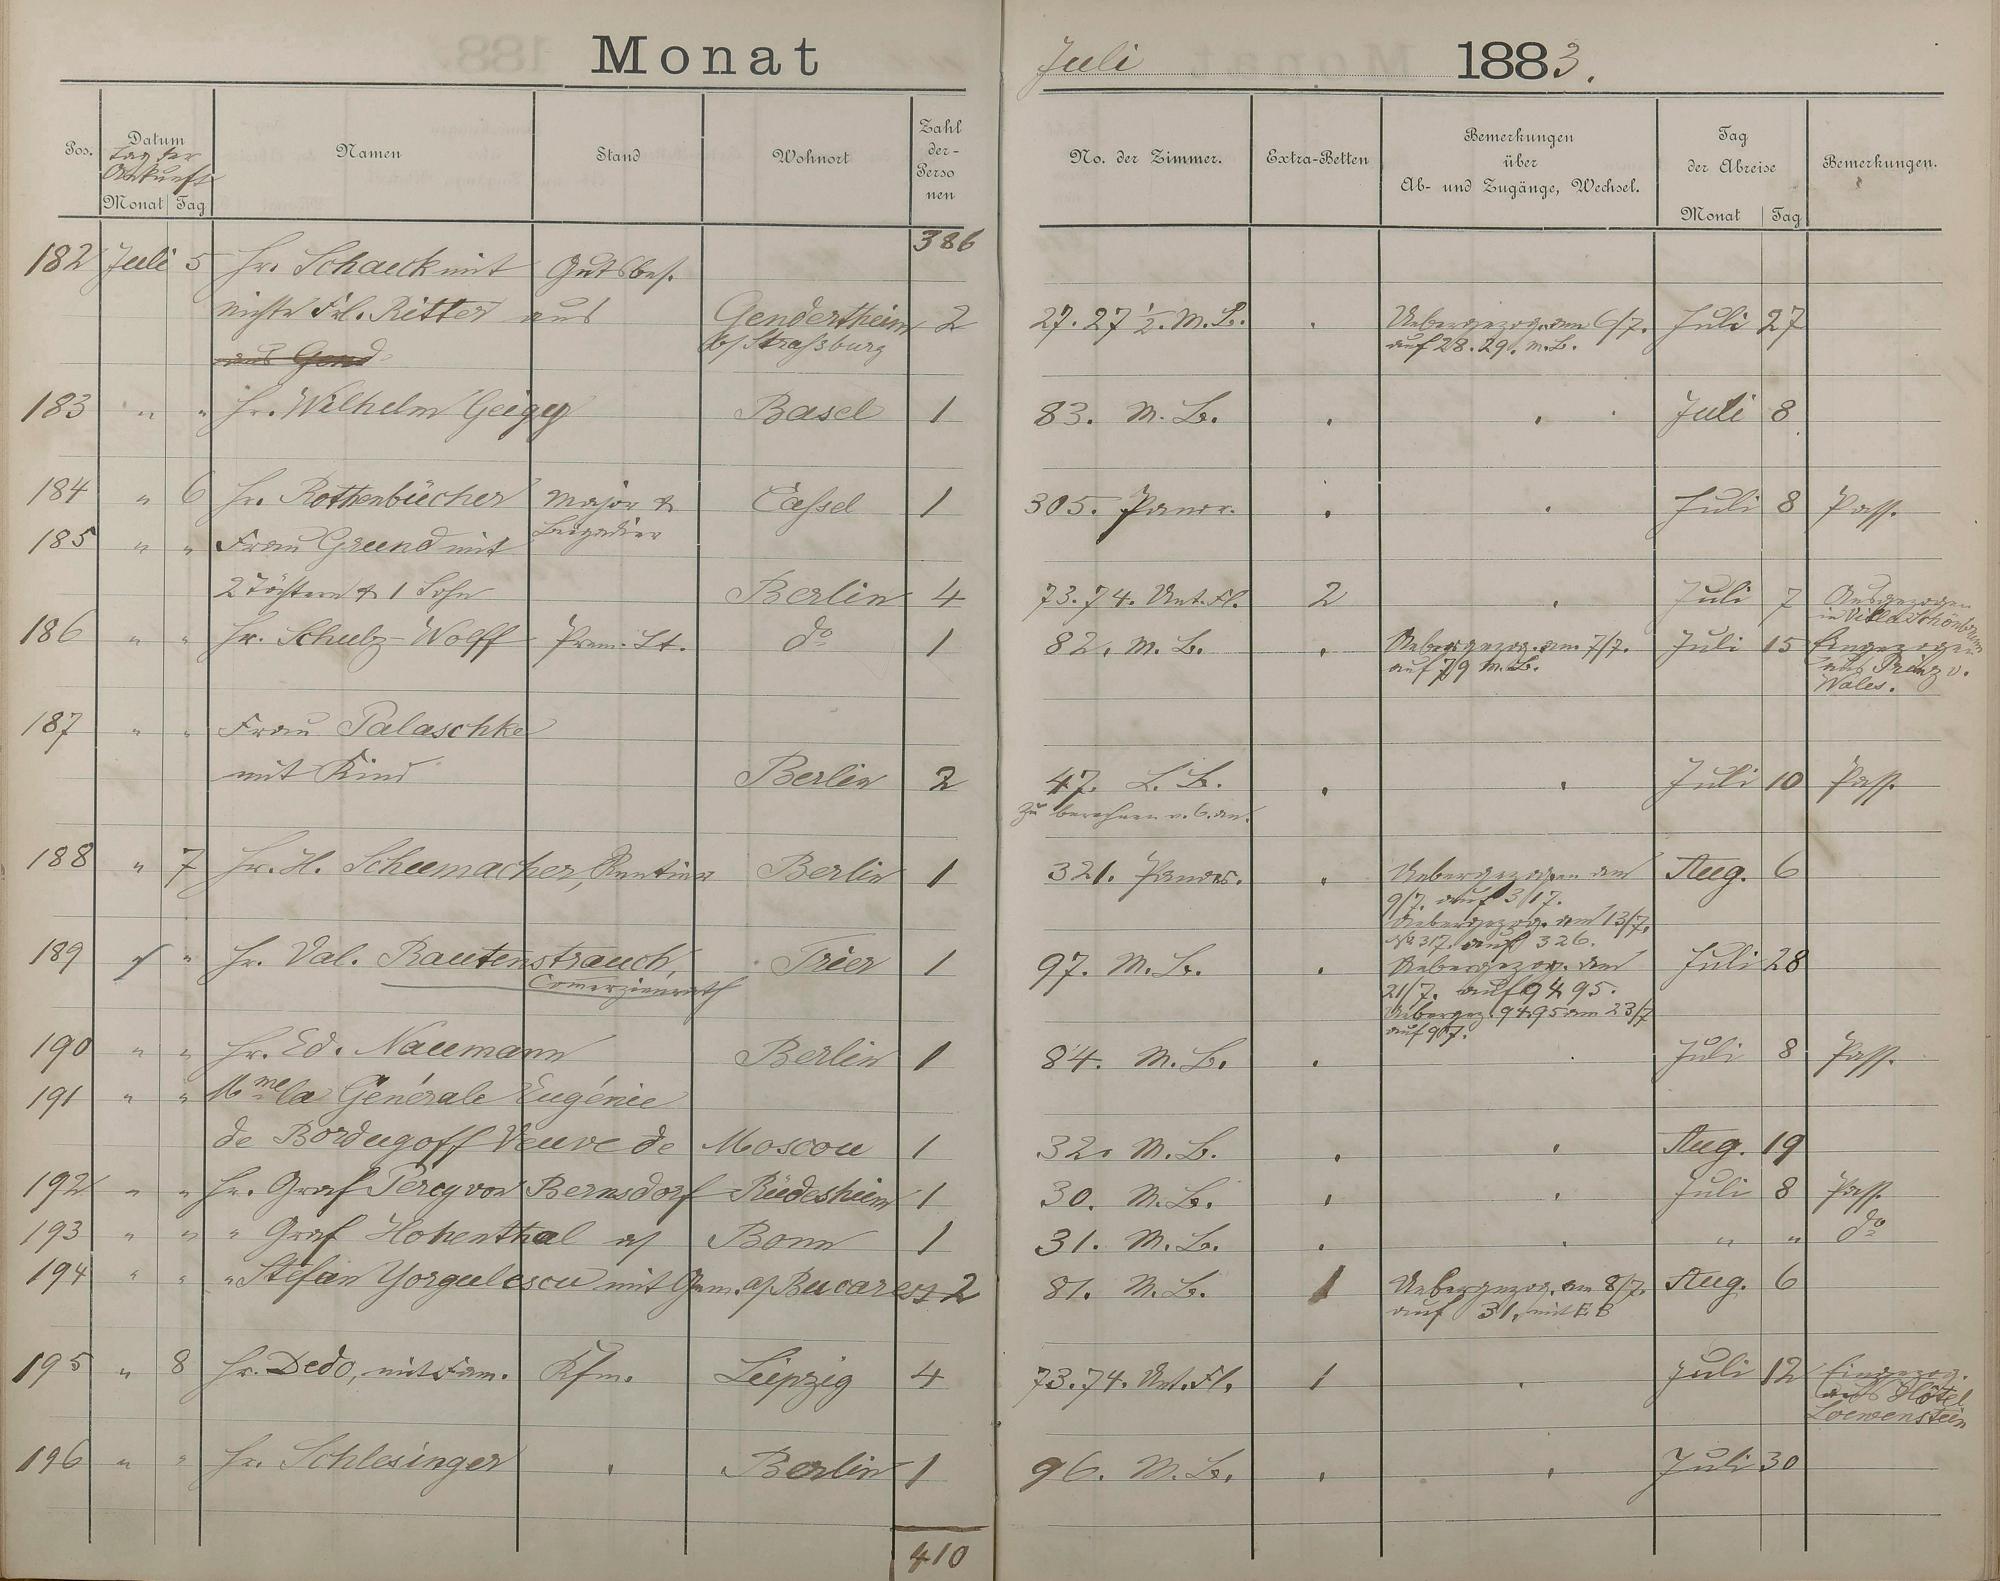 Monat Juli 1883.
Pos. Datum Namen Stand Wohnort Zahl der Personen No. der Zimmer. Extra-Betten Bemerkungen über Ab- und Zugänge, Wechsel. Tag der Abreise Bemerkungen.
Tag der Ankunft
Monat Tag Monat Tag
386
182 Juli 5 Hr. Schaeck mit Gutsbes.
Nichte Frl. Ritter aus Gendertheim 2 27. 27 1/2. M.B. . Uebergezog. am 6/7. Juli 27
aus Gend b/ Straßburg auf 28. 29. M.B.
183 " " Hr. Wilhelm Geigy Basel 1 83. M. B. . . Juli 8
184 " 6 Hr. Rottenbücher Major & Cassel 1 305. Panor. . . Juli 8 Pass.
185 " " Frau Grund mit Brigadier
2 Töchtern & 1 Sohn Berlin 4 73. 74. Unt. Fl. 2 . Juli 7 Ausgezogen
in Villa Schönbrunn
186 " " Hr. Schulz-Wolff Prem. Lt. do 1 82. M. B. . Uebergezog. am 7/7. Juli 15 Eingezogen
auf 79 M.B. aus Prinz v.
Wales.
187 " " Frau Palaschke
mit Kind Berlin 2 47. L. B. . . Juli 10 Pass.
zu berechnen v. 6. an.
188 " 7 Hr. H. Schumacher, Rentier Berlin 1 321. Panor. . Uebergezogen am Aug. 6
9/7. auf 317.
Uebergezog. am 13/7.
No 317. auf 326.
189 " " Hr. Val. Rautenstrauch, Trier 1 97. M. B. . Uebergezog. am Juli 28
Comerzienrath 21/7. auf 94 95.
Uebergez. 94 95 am 23/7
auf 97.
190 " " Hr. Ed. Naumann Berlin 1 84. M. B. . . Juli 8 Pass.
191 " " Mme la Générale Eugénie
de Bordugoff Veuve de Moscou 1 32. M. B. . . Aug. 19
192 " " Hr. Graf Percy von Bernsdorf Rüdesheim 1 30. M. B. . . Juli 8 Pass.
193 " " " Graf Hohenthal a/ Bonn 1 31. M. B. . . " " do
194 " " " Stefan Yorgulescu mit Gem. a/ Bucarest 2 81. M. B. 1 Uebergezog. am 8/7. Aug. 6
auf 31. mit E B
195 " 8 Hr. Dedo, mit Fam. Kfm. Leipzig 4 73. 74. Unt. Fl. 1 . Juli 12 Eingezog.
aus Hôtel
Loewenstein
196 " " Hr. Schlesinger . Berlin 1 96. M. B. . . Juli 30
410